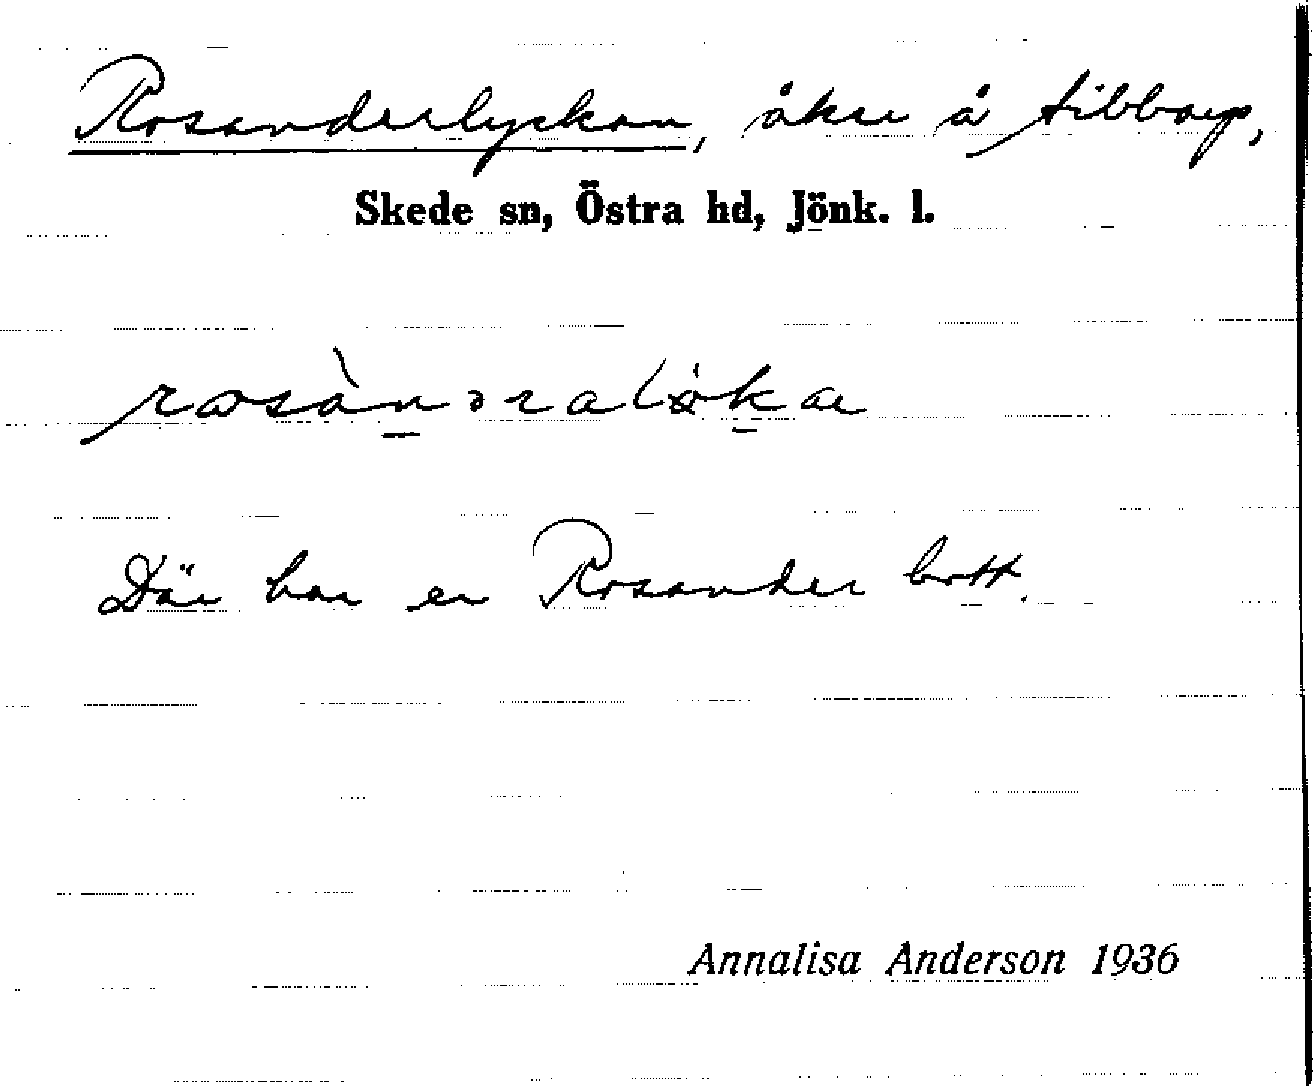 Rosanderlyckan, åker å Fibbarp,
Skede sn, Östra hd, Jönk. l.
Där har en Rosander bott.
Annalisa Anderson 1936